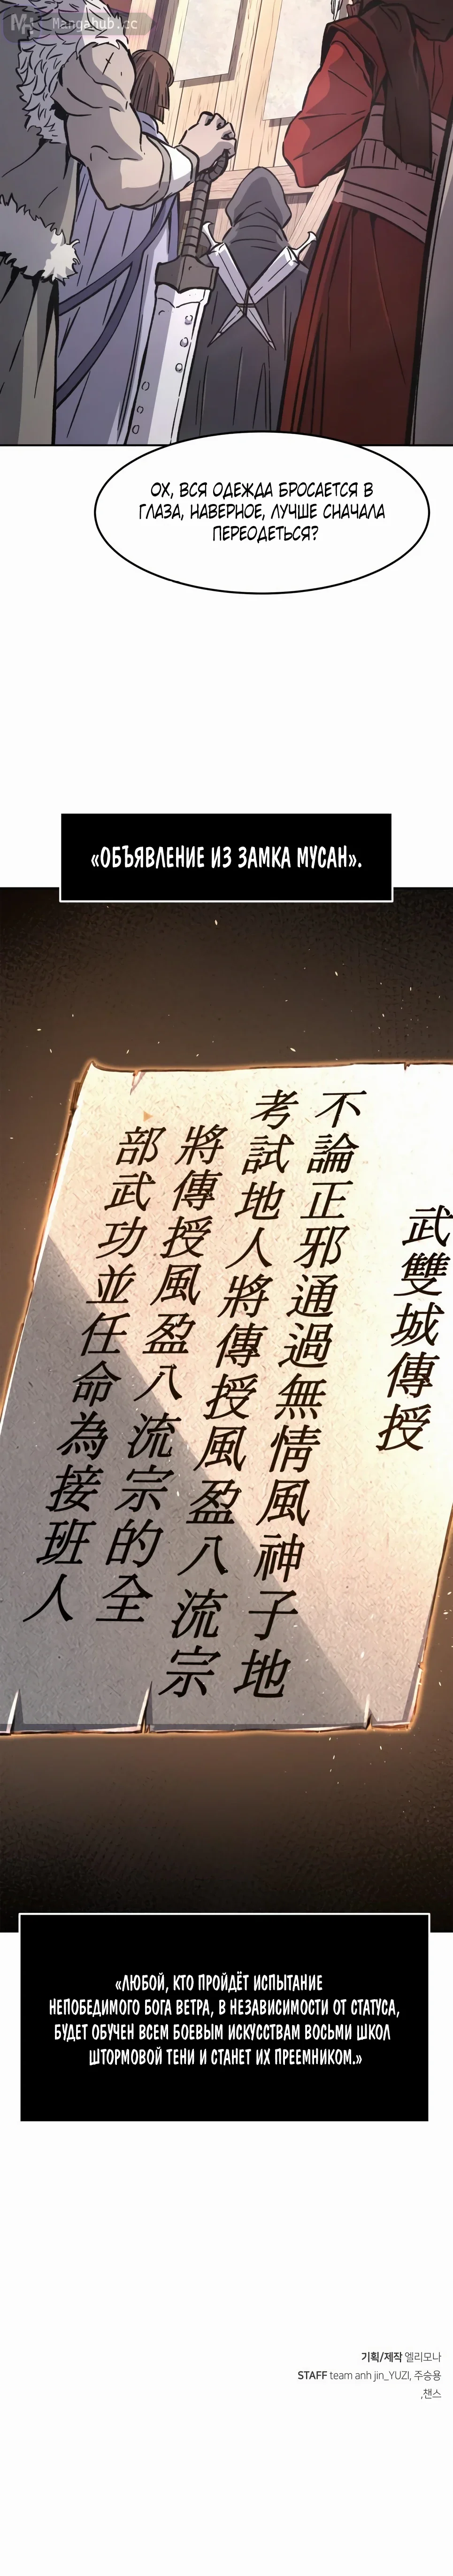 Mangahub.cc
ОХ, ВСЯ ОДЕЖДА БРОСАЕТСЯ В
ГЛАЗА, НАВЕРНОЕ, ЛУЧШЕ СНАЧАЛА
ПЕРЕОДЕТЬСЯ?
«ОБЪЯВЛЕНИЕ ИЗ ЗАМКА МУСАН».
武雙城傳授
不論正邪通過無情風神子地
考試地人將傳授風盈八流宗
將傳授風盈八流宗的全
部武功並任命為接班人
«ЛЮБОЙ, КТО ПРОЙДЁТ ИСПЫТАНИЕ
НЕПОБЕДИМОГО БОГА ВЕТРА, В НЕЗАВИСИМОСТИ ОТ СТАТУСА,
БУДЕТ ОБУЧЕН ВСЕМ БОЕВЫМ ИСКУССТВАМ ВОСЬМИ ШКОЛ
ШТОРМОВОЙ ТЕНИ И СТАНЕТ ИХ ПРЕЕМНИКОМ.»
기획/제작 엘리모나
STAFF team anh jin_YUZI, 주승용
,챈스